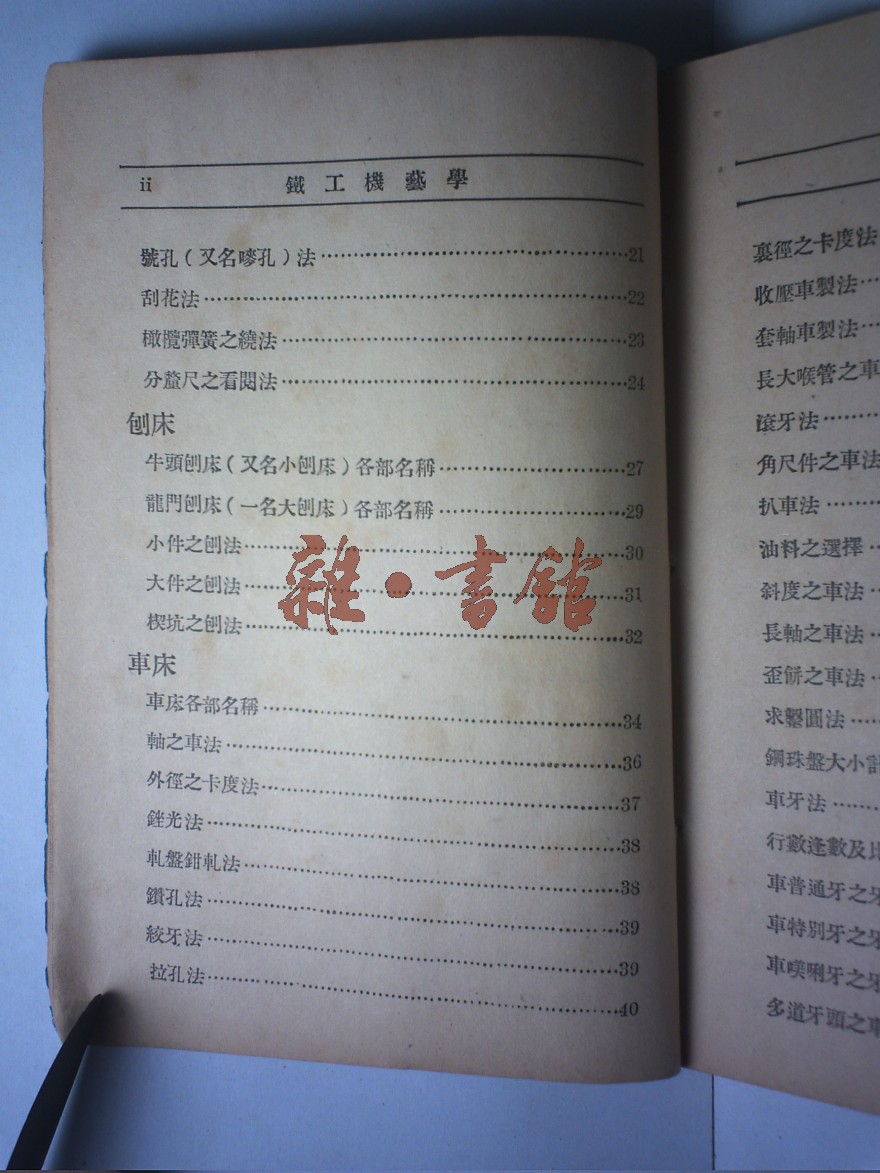 ii 鐵工機藝學
號孔(又名嘜孔)法……21
刮花法……22
橄欖彈簧之繞法……23
分釐尺之看閱法……24
刨床
牛頭刨床(又名小刨床)各部名稱……27
龍門刨床(一名大刨床)各部名稱……29
小件之刨法……30
大件之刨法……31
楔坑之刨法……32
車床
車床各部名稱……34
軸之車法……36
外徑之卡度法……37
銼光法……38
軋盤鉗軋法……38
鑽孔法……39
絞牙法……39
拉孔法……40
雜·書館
裏徑之卡度法
收壓車製法……
套軸車製法……
長大喉管之車
滾牙法……
角尺件之車法
扒車法……
油料之選擇……
斜度之車法……
長軸之車法……
歪餅之車法……
求鑿圓法……
鋼珠盤大小
車牙法……
行數逢數及
車普通牙之牙
車特別牙之牙
車噗唎牙之牙
多道牙頭之車